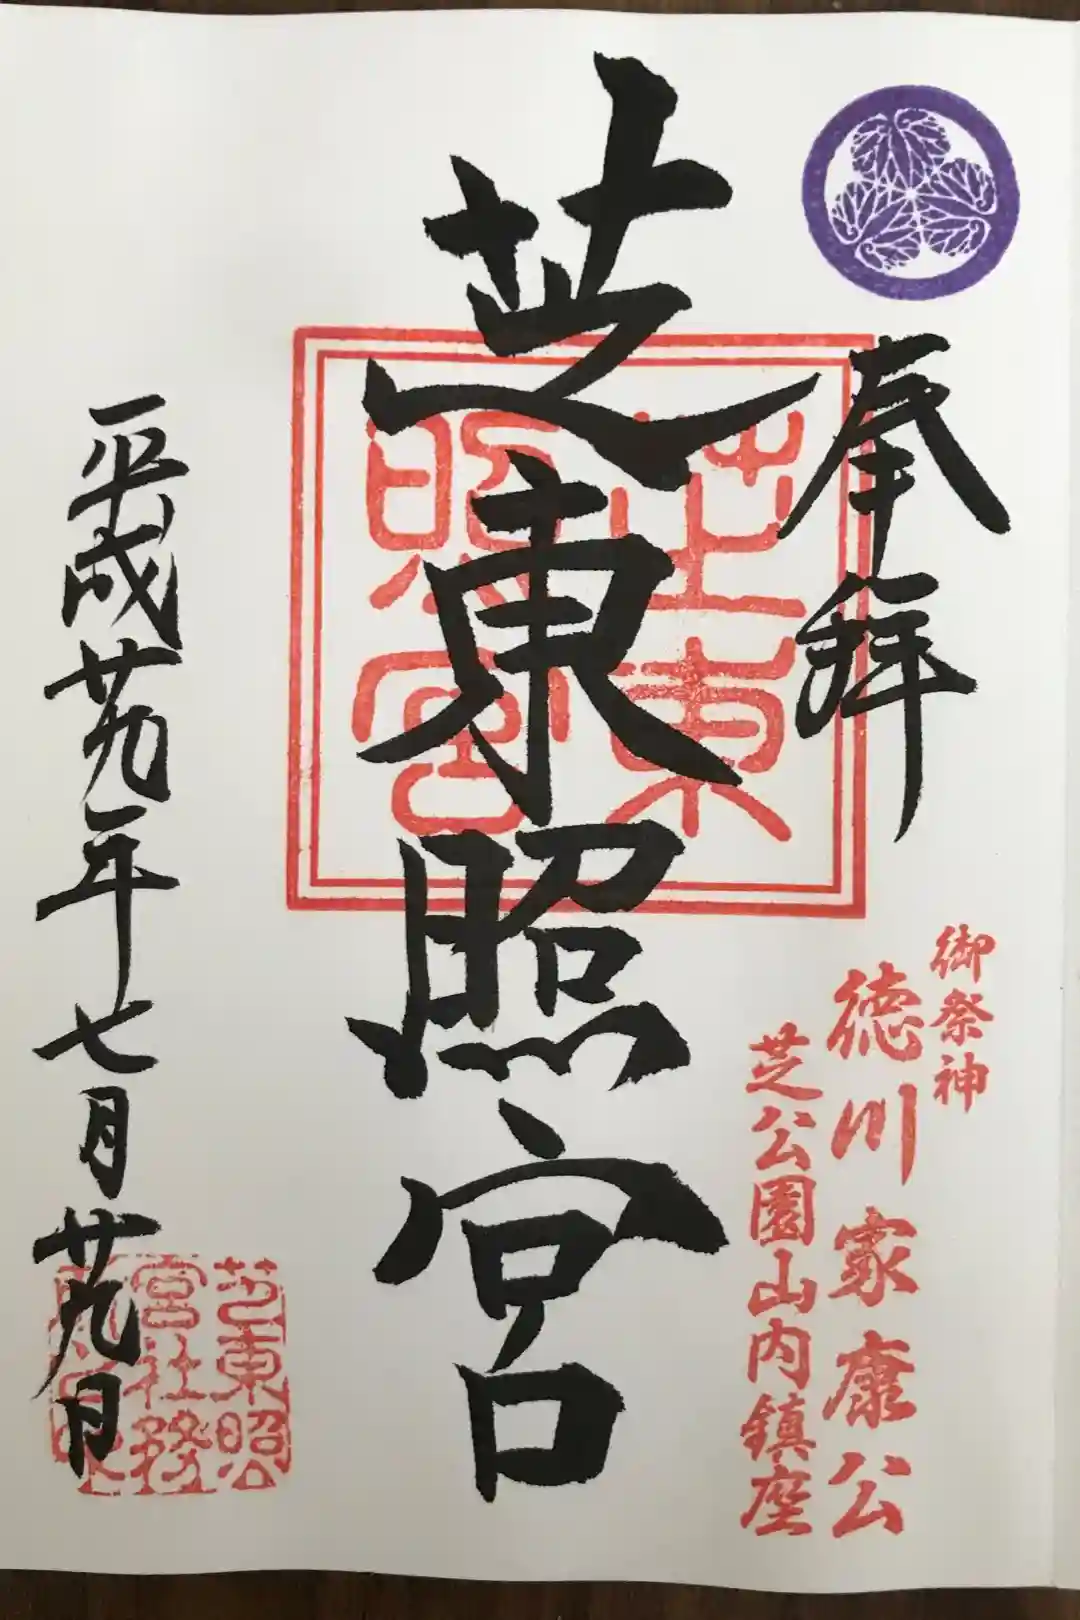 奉拝
御祭神
徳川家康公
芝公園山内鎮座
芝東照宮
芝東
照宮
平成廿九年七月廿九日
芝東照
宮社務